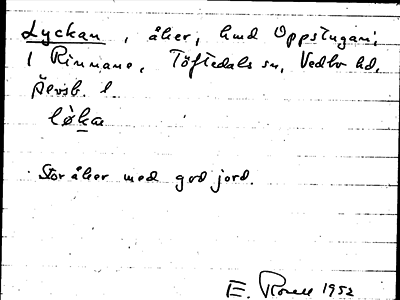 Lyckan, åker, hmd Oppstugan;
i Rinnane, Töftedals sn, Vedbo hd,
Älvsb. l.
lø̀ka
Stor åker med god jord.
E. Rosell 1952